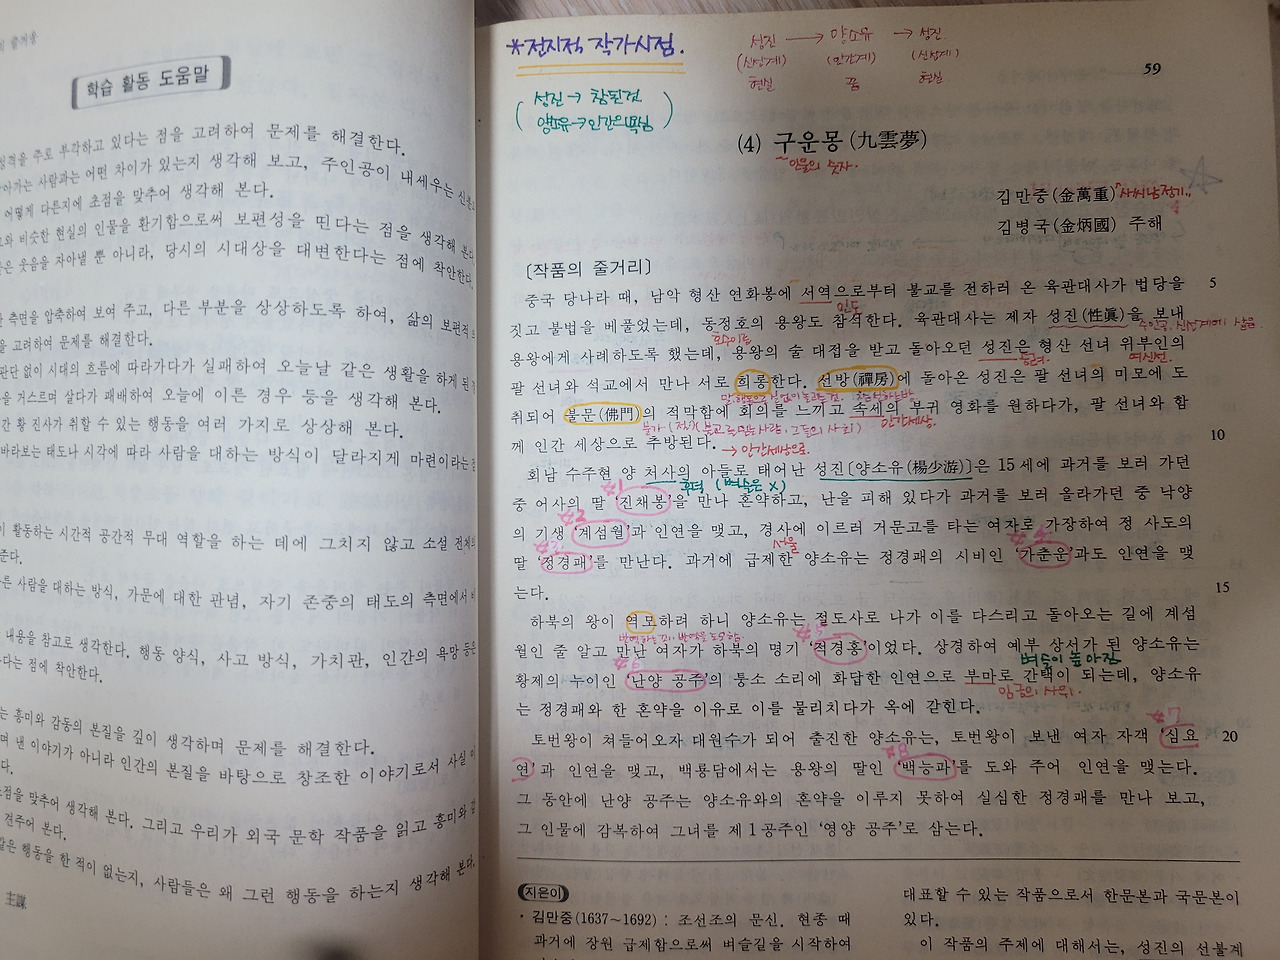 학습 활동 도움말
성격을 주로 부각하고 있다는 점을 고려하여 문제를 해결한다.
살아가는 사람과는 어떤 차이가 있는지 생각해 보고, 주인공이 내세우는
어떻게 다른지에 초점을 맞추어 생각해 본다.
비슷한 현실의 인물을 환기함으로써 보편성을 띤다는 점을 생각해 본다.
웃음을 자아낼 뿐 아니라, 당시의 시대상을 대변한다는 점에 착안한다.
측면을 압축하여 보여 주고, 다른 부분을 상상하도록 하여, 삶의 보편적
을 고려하여 문제를 해결한다.
판단 없이 시대의 흐름에 따라가다가 실패하여 오늘날 같은 생활을 하게 된
을 거스르며 살다가 패배하여 오늘에 이른 경우 등을 생각해 본다.
황 진사가 취할 수 있는 행동을 여러 가지로 상상해 본다.
바라보는 태도나 시각에 따라 사람을 대하는 방식이 달라지게 마련이라는
이 활동하는 시간적 공간적 무대 역할을 하는 데에 그치지 않고 소설 전체의
준다.
다른 사람을 대하는 방식, 가문에 대한 관념, 자기 존중의 태도의 측면에서
내용을 참고로 생각한다. 행동 양식, 사고 방식, 가치관, 인간의 욕망 등은
다는 점에 착안한다.
는 흥미와 감동의 본질을 깊이 생각하며 문제를 해결한다.
며 낸 이야기가 아니라 인간의 본질을 바탕으로 창조한 이야기로서 사실
다.
초점을 맞추어 생각해 본다. 그리고 우리가 외국 문학 작품을 읽고 흥미와
견주어 본다.
같은 행동을 한 적이 없는지, 사람들은 왜 그런 행동을 하는지 생각해 본다.
主謀
*전지적 작가시점.
성진 → 양소유 → 성진
(신성계) (인간계) (신성계)
현실 꿈 현실
59
성진 → 참된것
양소유 → 인간의 욕심
(4) 구운몽(九雲夢)
인물의 숫자.
김만중(金萬重) "사씨남정기"
김병국(金炳國) 주해
〔작품의 줄거리〕
중국 당나라 때, 남악 형산 연화봉에 서역으로부터 불교를 전하러 온 육관대사가 법당을 5
인도
짓고 불법을 베풀었는데, 동정호의 용왕도 참석한다. 육관대사는 제자 성진(性眞)을 보내
주인공, 신성계에 살음.
용왕에게 사례하도록 했는데, 용왕의 술 대접을 받고 돌아오던 성진은 형산 선녀 위부인의
여신선.
팔 선녀와 석교에서 만나 서로 희롱한다. 선방(禪房)에 돌아온 성진은 팔 선녀의 미모에 도
취되어 불문(佛門)의 적막함에 회의를 느끼고 속세의 부귀 영화를 원하다가, 팔 선녀와 함
불가 (불교를 믿는 사람, 그들의 사회) 인간세상.
께 인간 세상으로 추방된다. → 인간세상으로. 10
회남 수주현 양 처사의 아들로 태어난 성진〔양소유(楊少游)〕은 15세에 과거를 보러 가던
(벼슬은 X)
#1
중 어사의 딸 '진채봉'을 만나 혼약하고, 난을 피해 있다가 과거를 보러 올라가던 중 낙양
#2
의 기생 '계섬월'과 인연을 맺고, 경사에 이르러 거문고를 타는 여자로 가장하여 정 사도의
#3 서울 #4
딸 '정경패'를 만난다. 과거에 급제한 양소유는 정경패의 시비인 '가춘운'과도 인연을 맺
는다. 15
하북의 왕이 역모하려 하니 양소유는 절도사로 나가 이를 다스리고 돌아오는 길에 계섬
#5
월인 줄 알고 만난 여자가 하북의 명기 '적경홍'이었다. 상경하여 예부 상서가 된 양소유는
#6 벼슬이 높아진
황제의 누이인 '난양 공주'의 퉁소 소리에 화답한 인연으로 부마로 간택이 되는데, 양소유
임금의 사위.
는 정경패와 한 혼약을 이유로 이를 물리치다가 옥에 갇힌다.
#7
토번왕이 쳐들어오자 대원수가 되어 출진한 양소유는, 토번왕이 보낸 여자 자객 '심요 20
#8
연'과 인연을 맺고, 백룡담에서는 용왕의 딸인 '백능파'를 도와 주어 인연을 맺는다.
그 동안에 난양 공주는 양소유와의 혼약을 이루지 못하여 실심한 정경패를 만나 보고,
그 인물에 감복하여 그녀를 제 1 공주인 '영양 공주'로 삼는다.
지은이
· 김만중(1637～1692) : 조선조의 문신. 현종 때
과거에 장원 급제함으로써 벼슬길을 시작하여
대표할 수 있는 작품으로서 한문본과 국문본이
있다.
이 작품의 주제에 대해서는, 성진의 선불계